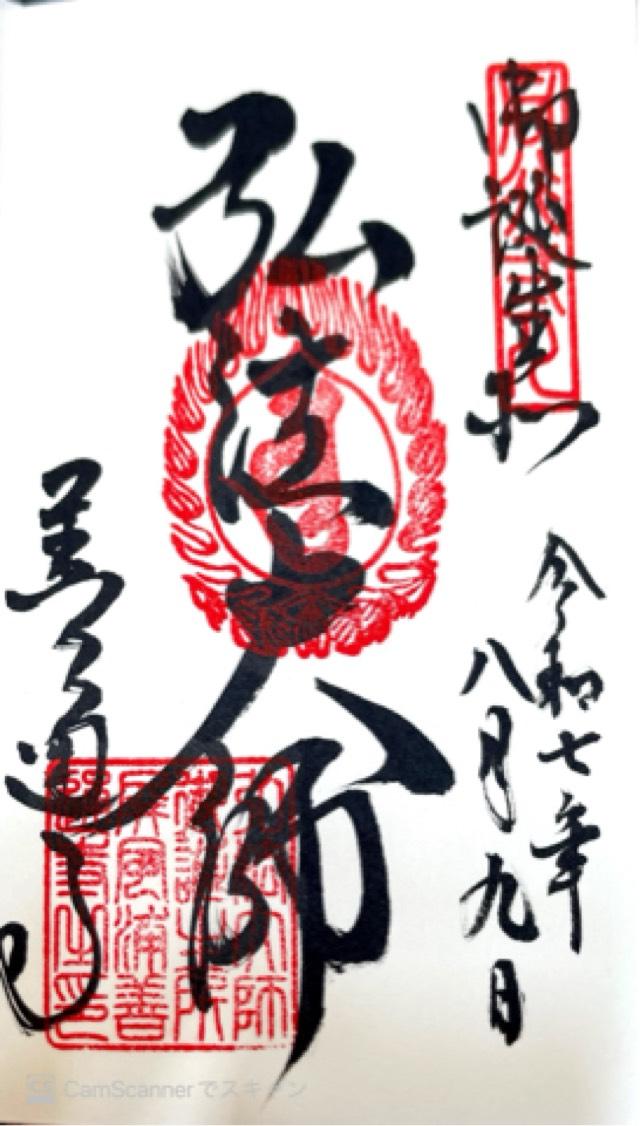 御誕生所
令和七年
八月九日
弘法大師
善通寺
弘法大師
御誕生所
屏風浦善
通寺之印
CamScannerでスキャン